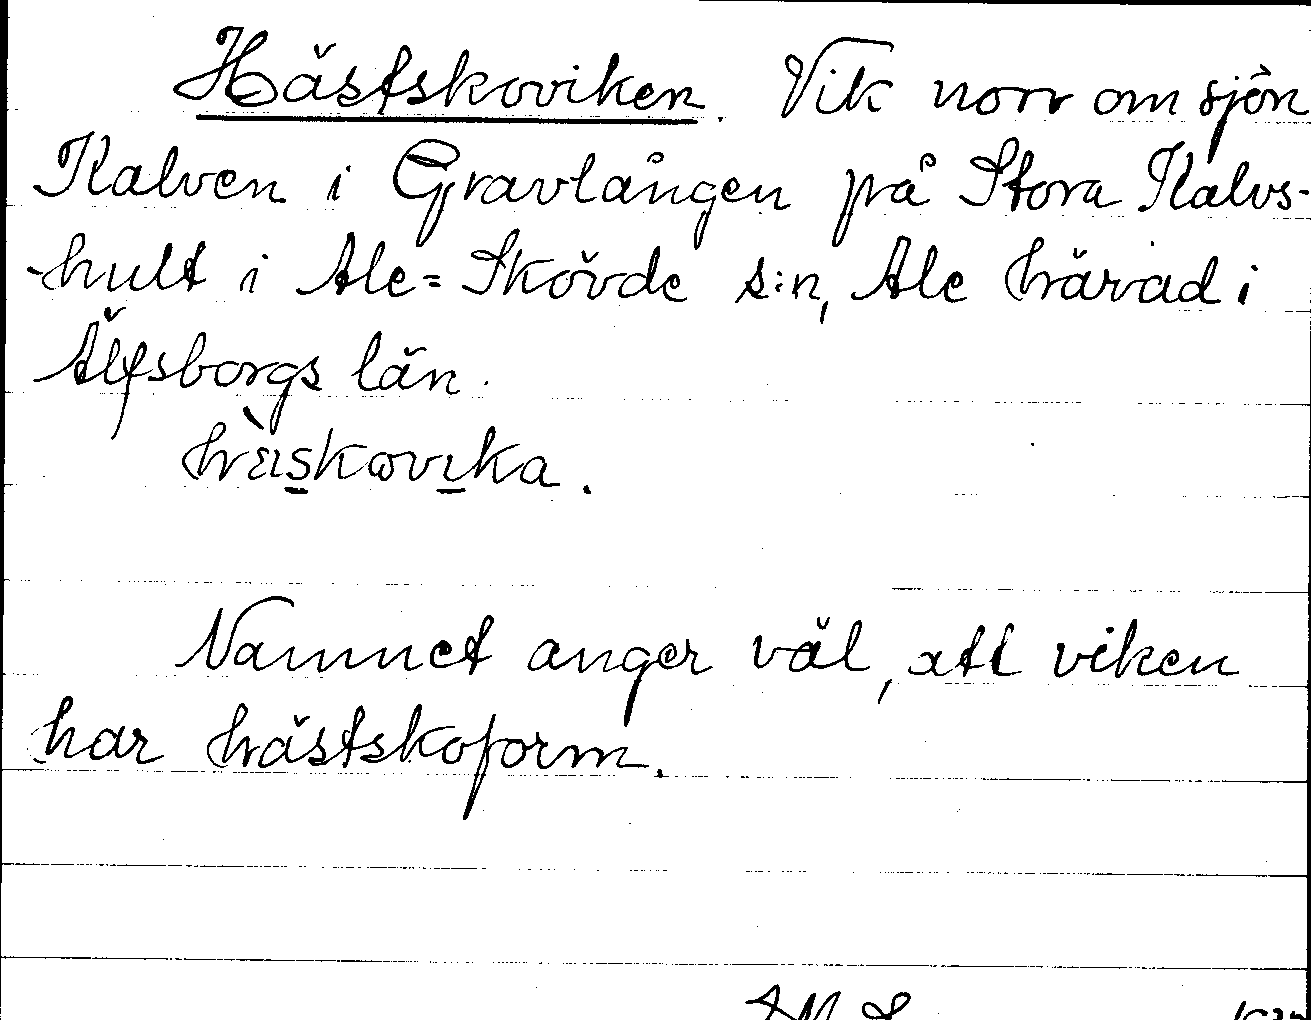 Hästskoviken. Vik norr om sjön
Kalven i Gravlången på Stora Kalvs-
-hult i Ale-Skövde s:n, Ale härad i
Älfsborgs län.
hä̀skovika.
Namnet anger väl, att viken
har hästskoform.